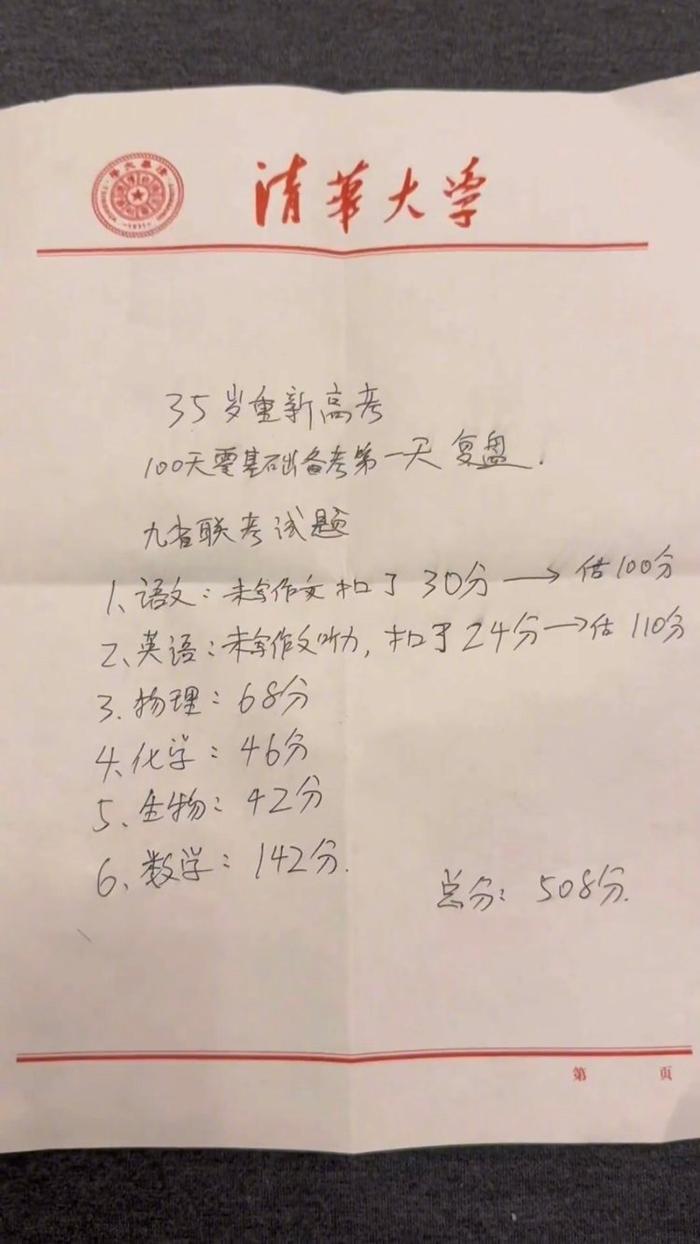 清華大学
35岁重新高考
100天零基础备考第一天 复盘.
九省联考试题
1、语文：未写作文 扣了 30分 → 估100分
2、英语：未写作文听力，扣了24分→估 110分
3.物理：68分
4.化学：46分
5、生物：42分
6、数学：142分.
总分：508分.
第 页